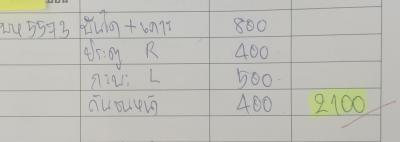 บห 5573 บันได+เสา 800
ประตู R 400
กระบะ L 500
กันชนหน้า 400 2100